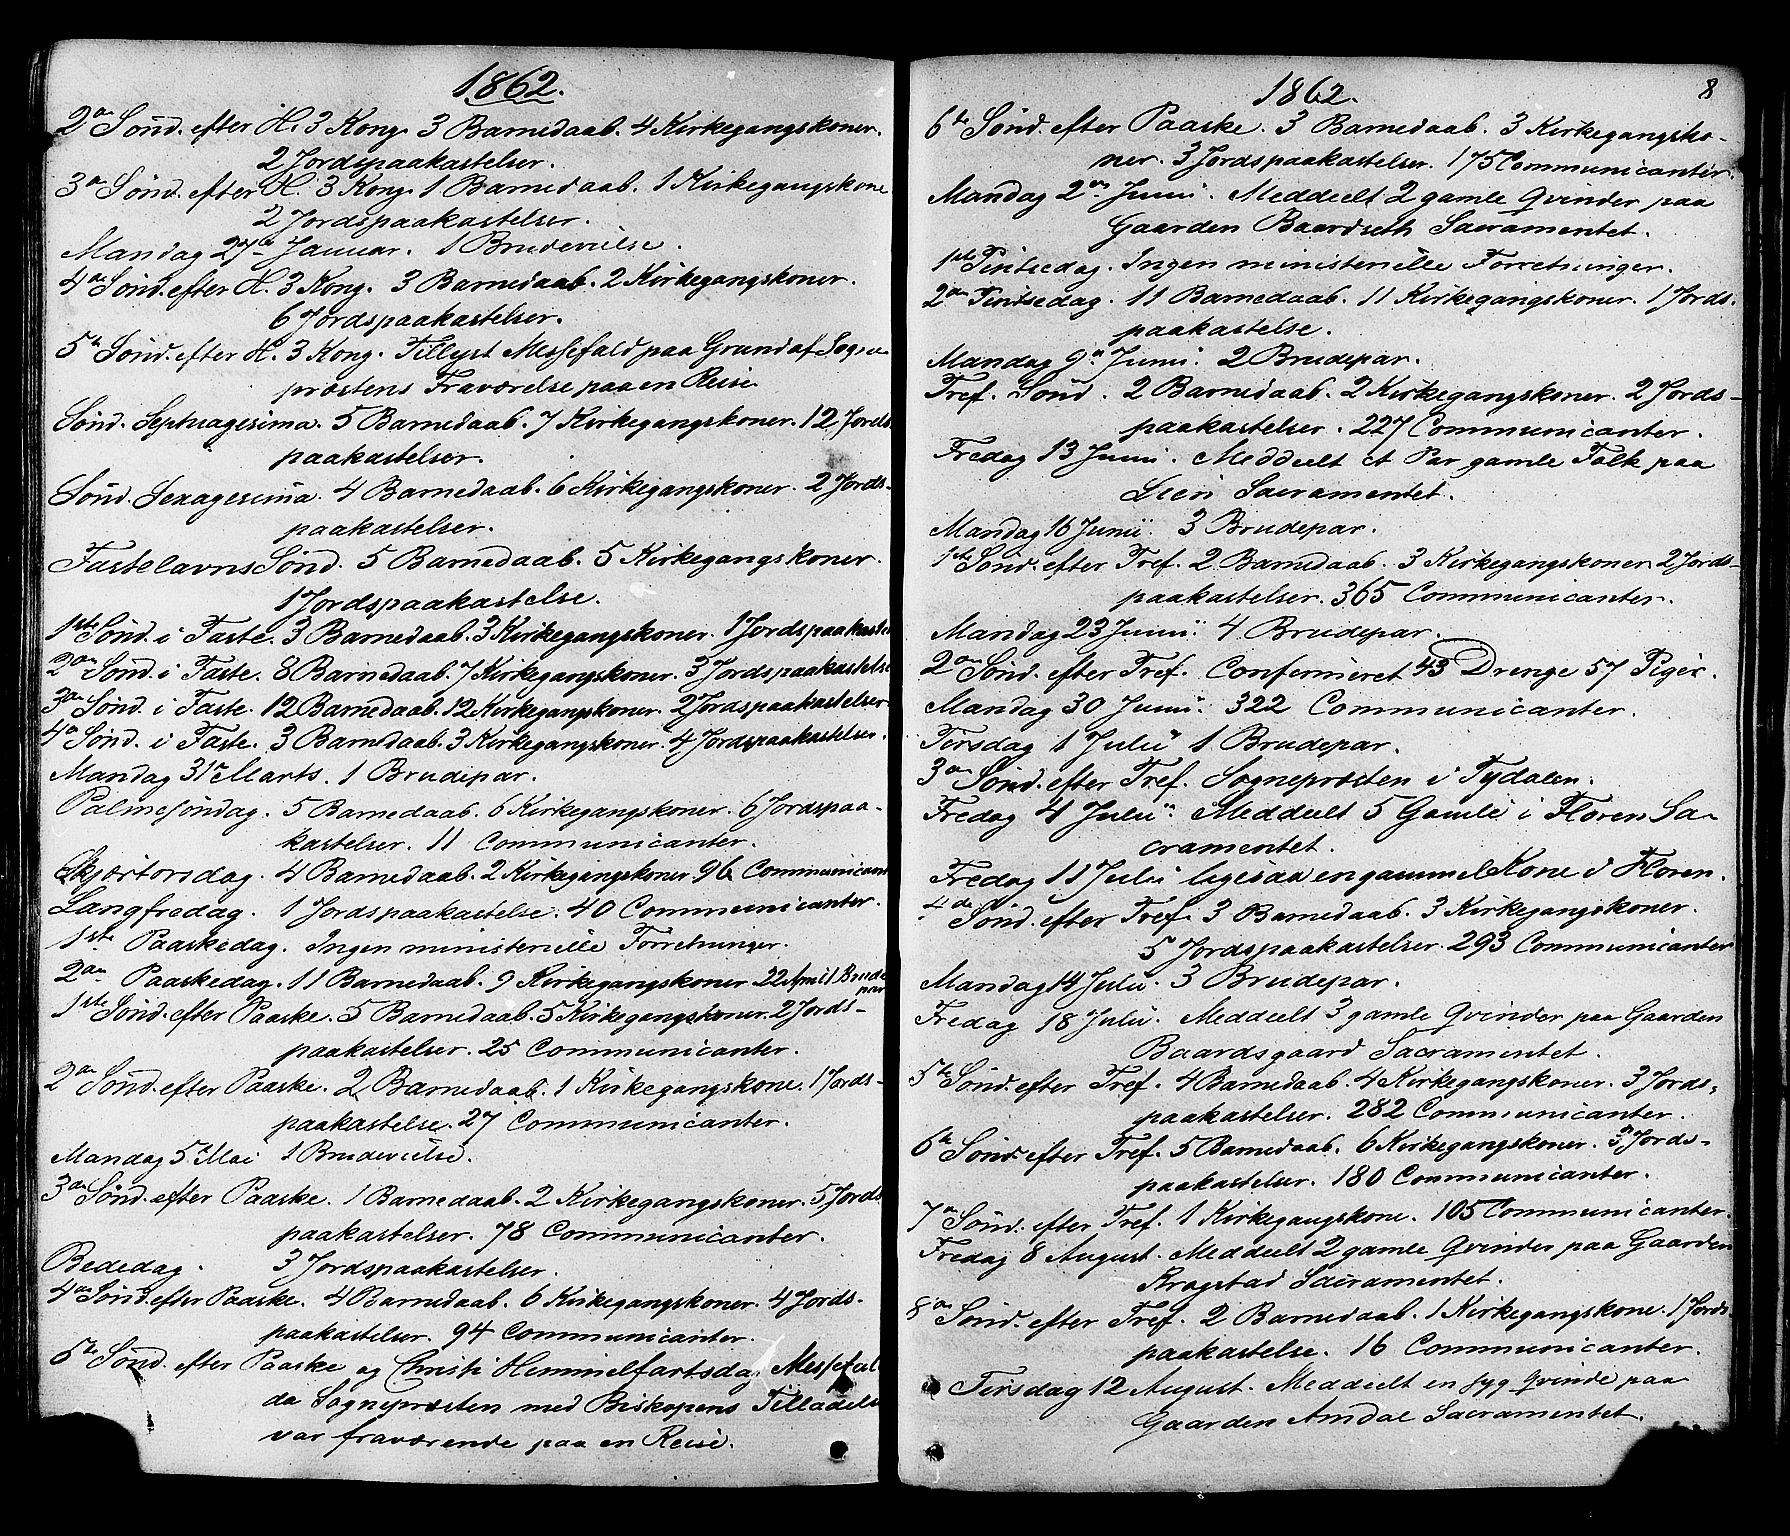 1862.
2den Sönd. efter H. 3 Kong. 3 Barnedaab. 4 Kirkegangskoner.
2 Jordspaakastelser.
3die Sönd. efter H. 3 Kong. 1 Barnedaab. 1 Kirkegangskone
2 Jordspaakastelser.
Mandag 27de Januar. 1 Brudevielse.
4de Sönd. efter H. 3 Kong. 3 Barnedaab. 2 Kirkegangskoner.
6 Jordspaakastelser.
5te Sönd. efter H. 3 Kong. Tillyst Messefald paa Grund af Sogne
præstens Fraværelse paa en Reise
Sönd. Septuagesima. 5 Barnedaab. 7 Kirkegangskoner. 12 Jords
paakastelser.
Sönd. Sexagesima. 4 Barnedaab. 6 Kirkegangskoner. 2 Jords-
paakastelser.
Fastelavns Sönd. 5 Barnedaab. 5 Kirkegangskoner.
1 Jordspaakastelse.
1ste Sönd. i Faste. 3 Barnedaab. 3 Kirkegangskoner. 1 Jordspaakastel
2den Sönd. i Faste. 8 Barnedaab. 7 Kirkegangskoner. 3 Jordspaakastelse
3die Sönd. i Faste. 12 Barnedaab. 12 Kirkegangskoner. 2 Jordspaakastelser
4de Sönd. i Faste. 3 Barnedaab. 3 Kirkegangskoner. 4 Jordspaakastelser.
Mandag 31te Marts. 1 Brudepar.
Palmesöndag. 5 Barnedaab. 6 Kirkegangskoner. 6 Jordspaa-
kastelser. 11 Communicanter.
Skjærtorsdag. 4 Barnedaab. 2 Kirkegangskoner 96 Communicant
Langfredag. 1 Jordspaakastelse. 40 Communicanter.
1ste Paaskedag. Ingen ministerielle Forretninger.
2den Paaskedag. 11 Barnedaab. 9 Kirkegangskoner. 22 April 1 Brude
par
1ste Sönd. efter Paaske. 5 Barnedaab. 5 Kirkegangskoner. 2 Jords-
paakastelser. 25 Communicanter.
2den Sönd. efter Paaske. 2 Barnedaab. 1 Kirkegangskone. 1 Jords-
paakastelse. 27 Communicanter.
Mandag 5te Mai 1 Brudevielse.
3die Sönd. efter Paaske. 1 Barnedaab. 2 Kirkegangskoner. 5 Jords
paakastelser. 78 Communicanter.
Bededag. 3 Jordspaakastelser.
4de Sönd. efter Paaske. 4 Barnedaab. 6 Kirkegangskoner. 4 Jords-
paakastelser. 94 Communicanter.
5te Sönd. efter Paaske og Christi Himmelfartsdag Messefal
da Sognepræsten med Biskopens Tilladelse
var fraværende paa en Reise.
1862.
8
6te Sönd. efter Paaske. 3 Barnedaab. 3 Kirkegangsko-
ner. 3 Jordspaakastelser. 175 Communicanter.
Mandag 2den Junii. Meddeelt 2 gamle Qvinder paa
Gaarden Baardseth Sacramentet.
1ste Pintsedag. Ingen ministerielle Forretninger.
2den Pintsedag. 11 Barnedaab. 11 Kirkegangskoner. 1 Jords-
paakastelse.
Mandag 9de Junii. 2 Brudepar.
Tref. Sönd. 2 Barnedaab. 2 Kirkegangskoner. 2 Jords-
paakastelser. 227 Communicanter.
Fredag 13 Junii. Meddeelt et Par gamle Folk paa
Lien Sacramentet.
Mandag 16 Junii. 3 Brudepar.
1ste Sönd. efter Tref. 2 Barnedaab. 3 Kirkegangskoner 2 Jords-
paakastelser. 365 Communicanter.
Mandag 23 Junii. 4 Brudepar.
2den Sönd. efter Tref. Confirmeret 43 Drenge 57 Piger.
Mandag 30 Junii. 322 Communicanter.
Tirsdag 1 Julii 1 Brudepar.
3die Sönd. efter Tref. Sognepræsten i Tydalen.
Fredag 4 Julii. Meddeelt 5 Gamle i Floren Sa-
cramentet.
Fredag 11 Julii ligesaa en gammel Kone i Floren.
4de Sönd. efter Tref. 3 Barnedaab. 3 Kirkegangskoner.
5 Jordspaakastelser. 293 Communicanter
Mandag 14 Julii. 3 Brudepar.
Fredag 18 Julii. Meddeelt 3 gamle Qvinder paa Gaarden
Baardsgaard Sacramentet.
5te Sönd. efter Tref. 4 Barnedaab. 4 Kirkegangskoner. 3 Jords-
paakastelser. 282 Communicanter.
6te Sönd. efter Tref. 5 Barnedaab. 6 Kirkegangskoner. Jords-
paakastelser. 180 Communicanter.
7de Sönd. efter Tref. 1 Kirkegangskone. 105 Communicanter.
Fredag 8 August. Meddeelt 2 gamle Qvinder paa Gaarden
Kragstad Sacramentet.
8de Sönd. efter Tref. 2 Barnedaab. 1 Kirkegangskone. 1 Jords-
paakastelse. 16 Communicanter.
Tirsdag 12 August. Meddeelt en syg Qvinde paa
Gaarden Amdal Sacramentet.